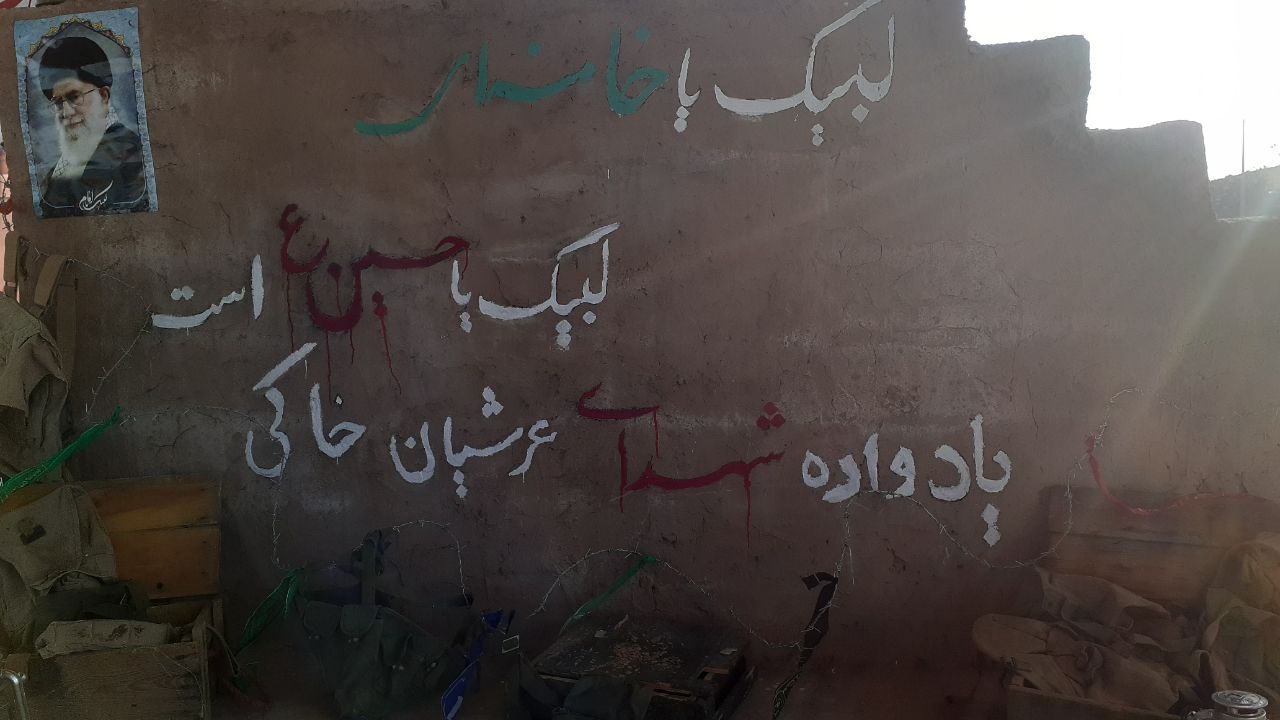 لبیک یا خامنه‌ای
لبیک یا حسین ع است
یادواره شهدای عرشیان خاکی